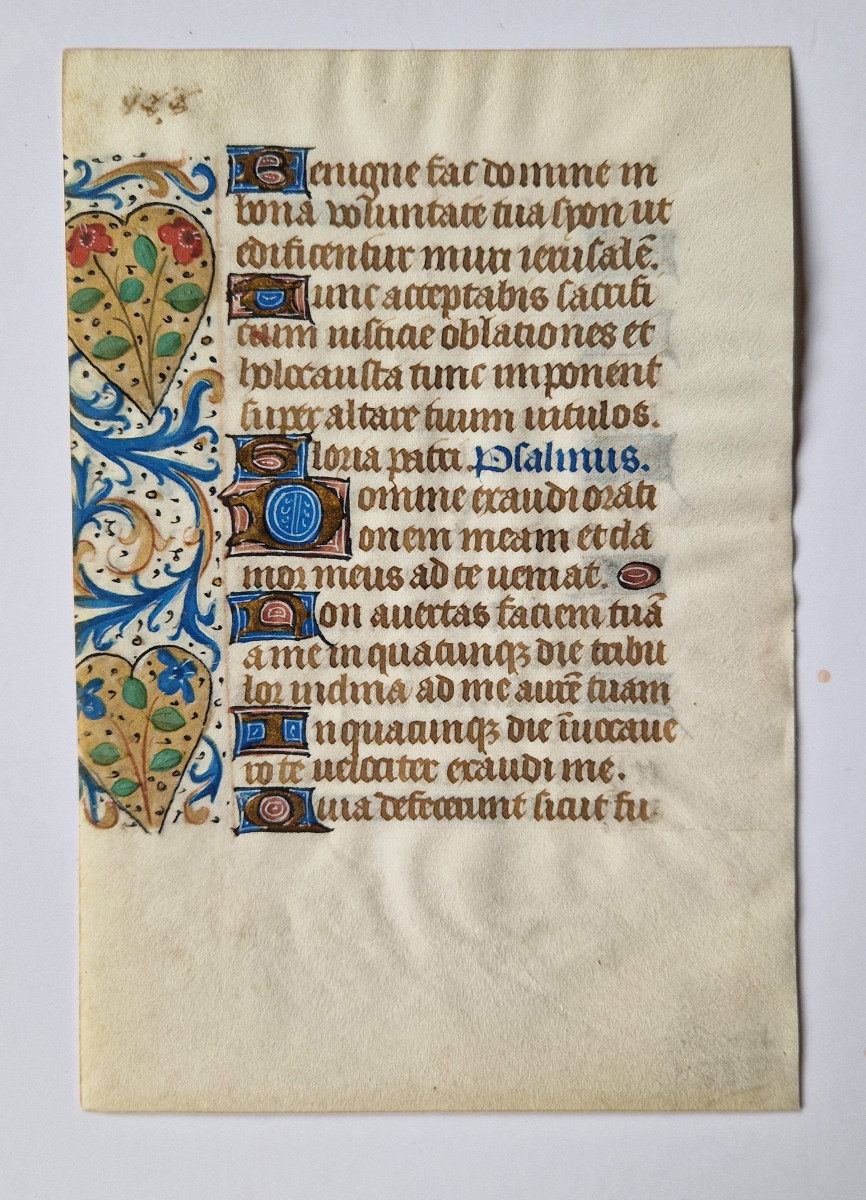 Benigne fac domine in
bona volūntate tua syon ut
edificentur muri ierusalē.
Tunc acceptabis sacrifi
cium iusticie oblationes et
holocausta tunc imponent
super altare tuum uitulos.
Gloria patri. Psalmus.
Domine exaudi orati
onem meam et cla
mor meus ad te ueniat.
Non auertas faciem tuā
a me in quacunqꝫ die tribu
lor inclina ad me aurē tuam
In quacunqꝫ die īuocaue
ro te uelociter exaudi me.
Quia defecerunt sicut fu